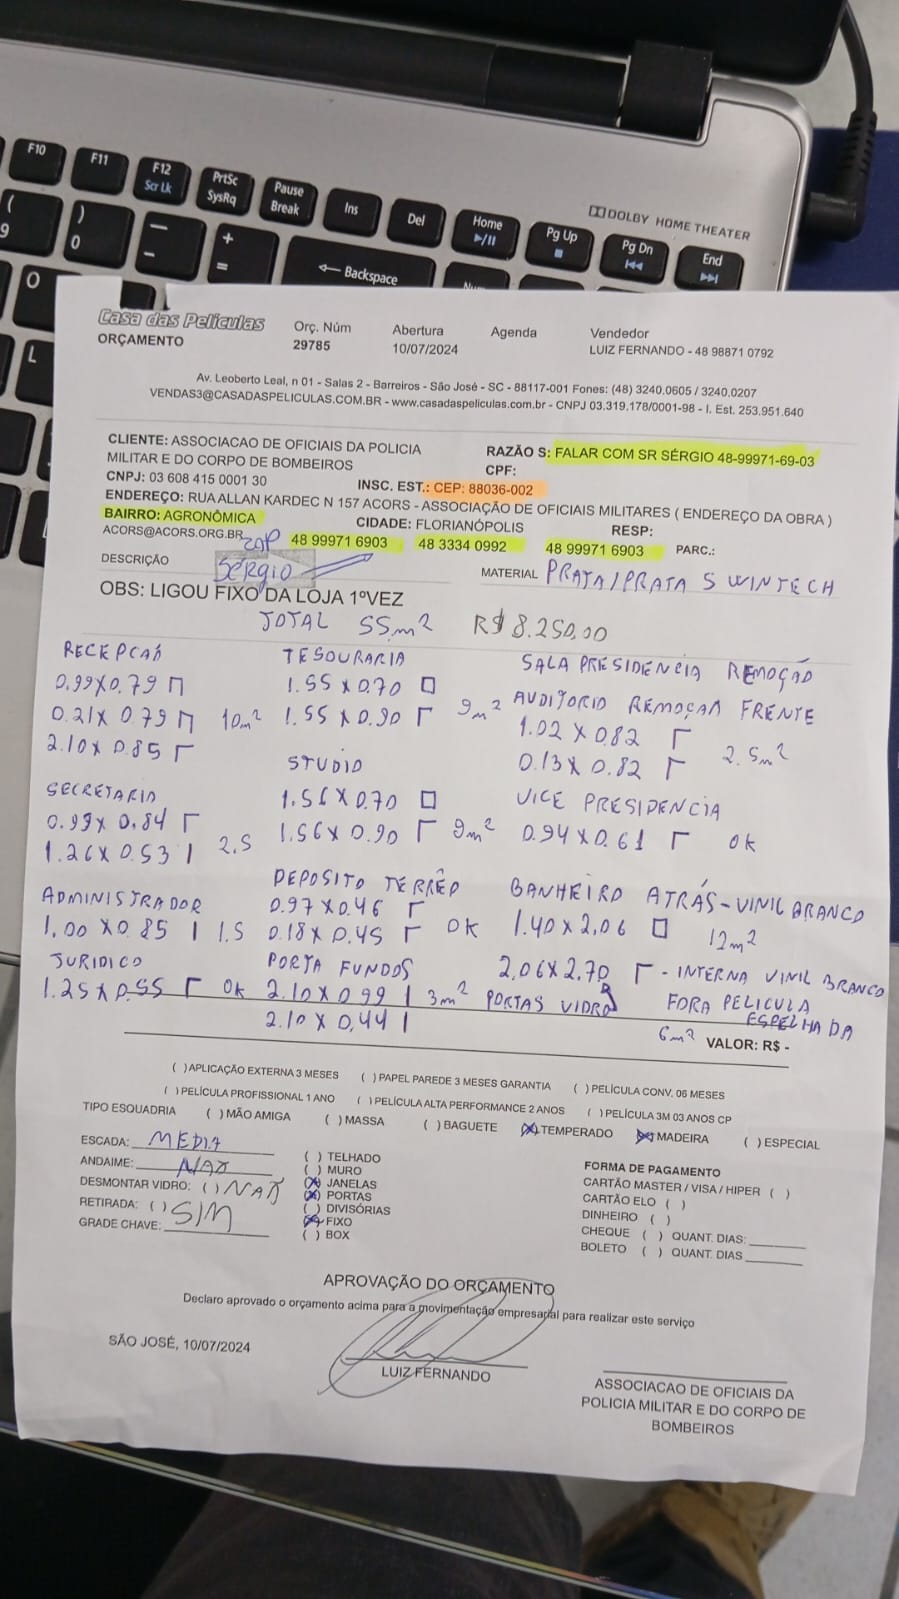 F10
F11
F12
Scr Lk
PrtSc
SysRq
Pause
Break
Ins
Del
Home
Pg Up
Pg Dn
End
DOLBY HOME THEATER
(
9
)
0
—
–
+
=
Backspace
O
L
Casa das Películas
ORÇAMENTO
Orç. Núm
29785
Abertura
10/07/2024
Agenda
Vendedor
LUIZ FERNANDO - 48 98871 0792
Av. Leoberto Leal, n 01 - Salas 2 - Barreiros - São José - SC - 88117-001 Fones: (48) 3240.0605 / 3240.0207
VENDAS3@CASADASPELICULAS.COM.BR - www.casadaspeliculas.com.br - CNPJ 03.319.178/0001-98 - I. Est. 253.951.640
CLIENTE: ASSOCIACAO DE OFICIAIS DA POLICIA
MILITAR E DO CORPO DE BOMBEIROS
RAZÃO S: FALAR COM SR SÉRGIO 48-99971-69-03
CPF:
CNPJ: 03 608 415 0001 30
INSC. EST.: CEP: 88036-002
ENDEREÇO: RUA ALLAN KARDEC N 157 ACORS - ASSOCIAÇÃO DE OFICIAIS MILITARES ( ENDEREÇO DA OBRA )
BAIRRO: AGRONÔMICA
CIDADE: FLORIANÓPOLIS
RESP:
ACORS@ACORS.ORG.BR
ZAP
48 99971 6903
48 3334 0992
48 99971 6903
PARC.:
DESCRIÇÃO
SÉRGIO
MATERIAL PRATA/PRATA 5 WINTECH
OBS: LIGOU FIXO DA LOJA 1ºVEZ
TOTAL 55m² R$ 8.250,00
RECEPÇAÕ
0.99x0.79 Π
0.21x 0.79 Π 10m²
2.10x 0.85 Γ
TESOURARIA
1.55 x 0.70 □
1.55 x 0.90 Γ 9m²
SALA PRESIDENCIA REMOÇÃO
AUDITORIO REMOÇAM FRENTE
1.02 x 0.82 Γ
0.13x 0.82 Γ 2.5m²
STUDIO
1.56x0.70 □
1.56x 0.90 Γ 9m²
SECRETARIO
0.99x 0.84 Γ
1.26x0.53 | 2,5
VICE PRESIDENCIA
0.94x0.61 Γ OK
ADMINISTRADOR
1,00 x0.85 | 1.5
DEPOSITO TERRÉO
0.97x0.46 Γ
0.18x 0.45 Γ OK
BANHEIRO ATRÁS-VINIL BRANCO
1.40x2,06 □ 12m²
JURIDICO
1.25x0.55 Γ OK
PORTA FUNDOS
2.10x0.99 | 3m²
2.10 x 0,44 |
2,06x2.70 Γ - INTERNA VINIL BRANCO
PORTAS VIDRO FORA PELICULA
ESPELHADA
6m² VALOR: R$ -
( )APLICAÇÃO EXTERNA 3 MESES ( ) PAPEL PAREDE 3 MESES GARANTIA ( )PELÍCULA CONV. 06 MESES
( )PELÍCULA PROFISSIONAL 1 ANO ( )PELÍCULA ALTA PERFORMANCE 2 ANOS ( )PELÍCULA 3M 03 ANOS CP
TIPO ESQUADRIA ( )MÃO AMIGA ( )MASSA ( )BAGUETE (X)TEMPERADO (X)MADEIRA ( )ESPECIAL
ESCADA: MEDIA
ANDAIME: NAO
DESMONTAR VIDRO: ( ) NAÕ
RETIRADA: ( ) SIM
GRADE CHAVE:
( ) TELHADO
( ) MURO
(X) JANELAS
(X) PORTAS
( ) DIVISÓRIAS
(X) FIXO
( ) BOX
FORMA DE PAGAMENTO
CARTÃO MASTER / VISA / HIPER ( )
CARTÃO ELO ( )
DINHEIRO ( )
CHEQUE ( ) QUANT. DIAS:
BOLETO ( ) QUANT. DIAS
APROVAÇÃO DO ORÇAMENTO
Declaro aprovado o orçamento acima para a movimentação empresarial para realizar este serviço
SÃO JOSÉ, 10/07/2024
LUIZ FERNANDO
ASSOCIACAO DE OFICIAIS DA
POLICIA MILITAR E DO CORPO DE
BOMBEIROS